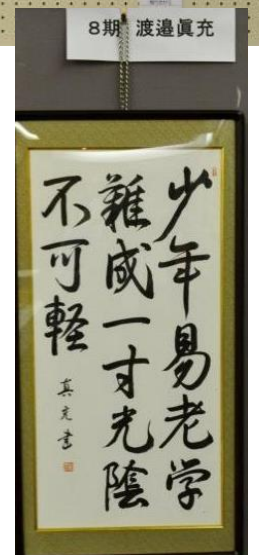 8期 渡邉眞充
少年易老学
難成一寸光陰
不可軽
真充書